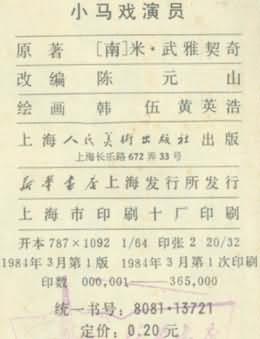 小马戏演员
原著 [南]米·武雅契奇
改编 陈元山
绘画 韩伍 黄英浩
上海人民美術出版社出版
上海长乐路672弄33号
新华书店上海发行所发行
上海市印刷十厂印刷
开本787×1092 1/64 印张2 20/32
1984年3月第1版 1984年3月第1次印刷
印数 000,001—365,000
统一书号：8081·13721
定价：0.20元